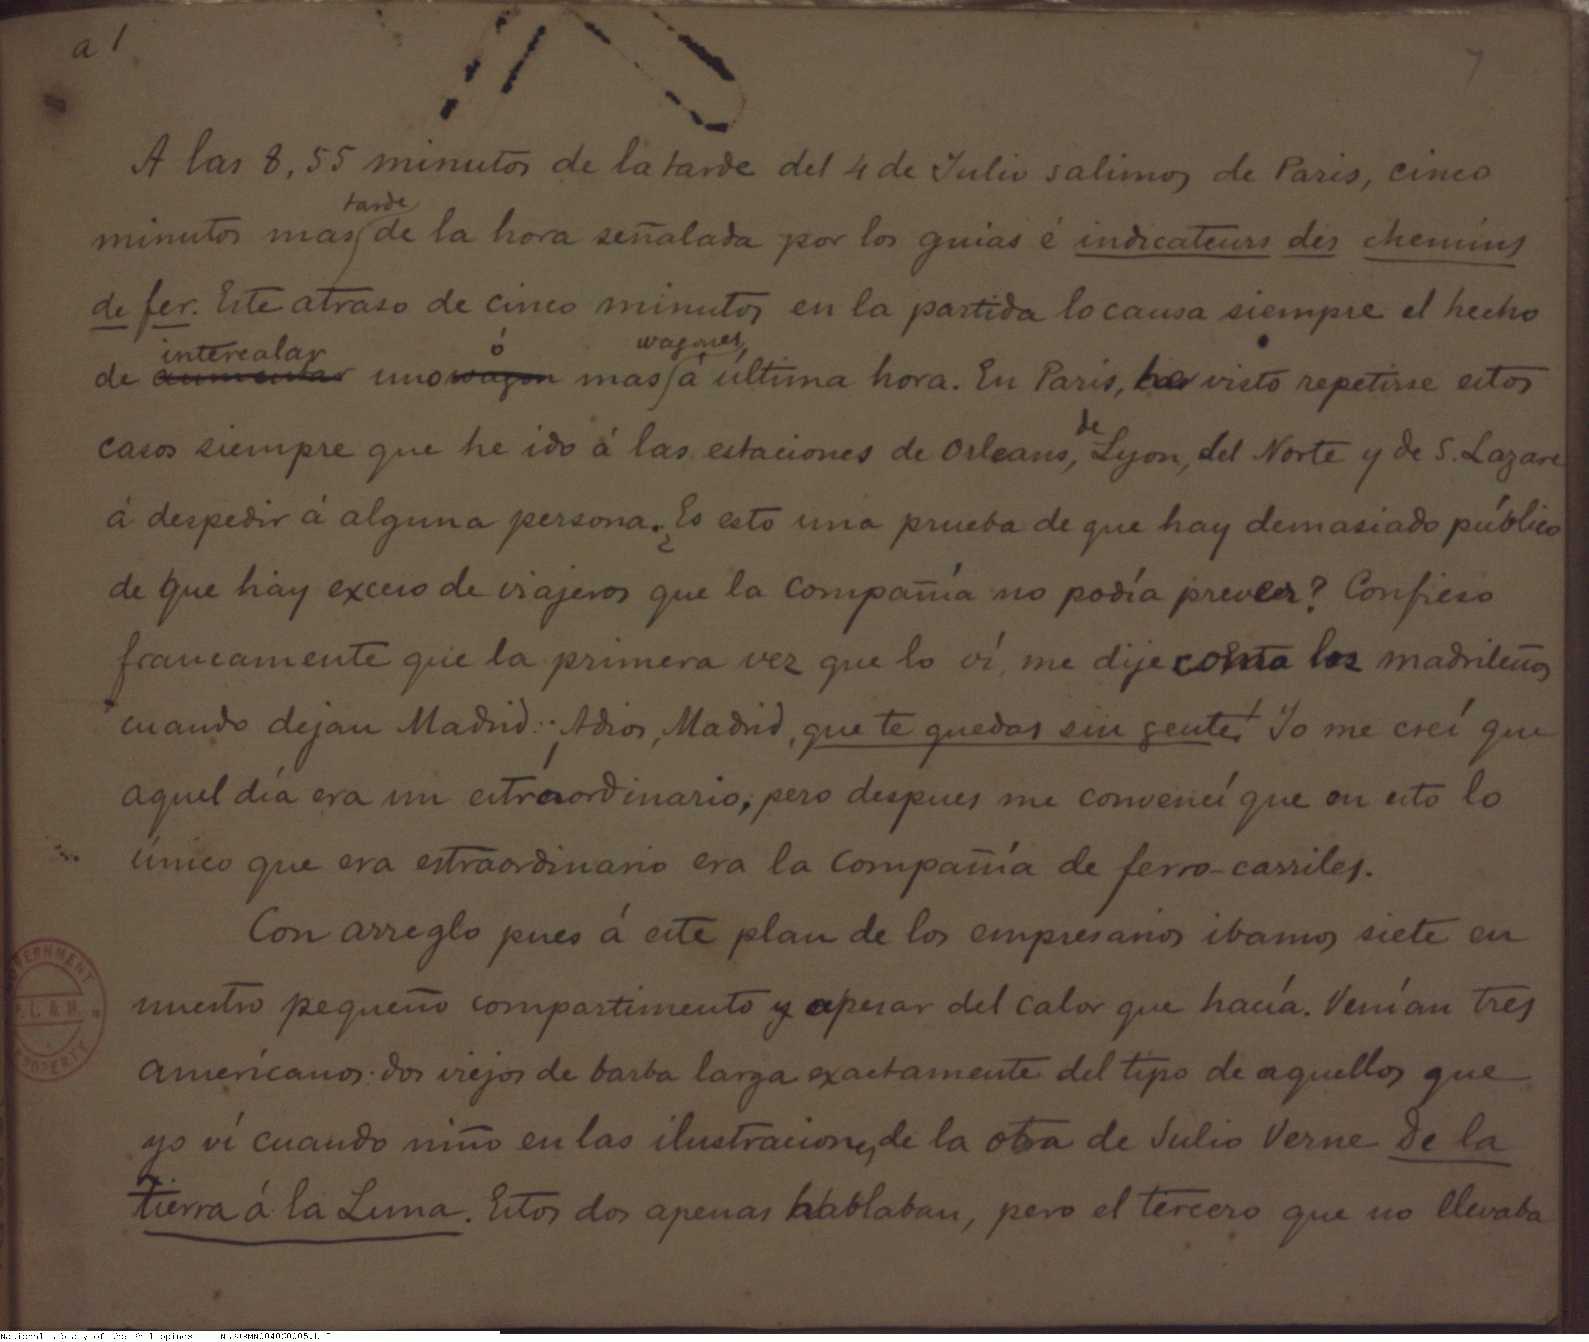 a 1
7
A las 8,55 minutos de la tarde del 4 de Julio salimos de Paris, cinco
minutos mas tarde de la hora señalada por los guias é indicateurs des chemins
de fer. Este atraso de cinco minutos en la partida lo causa siempre el hecho
de aumentar intercalar uno wagon ó mas wagones á última hora. En Paris, he visto repetirse estos
casos siempre que he ido á las estaciones de Orleans, de Lyon, del Norte y de S. Lazare
á despedir á alguna persona. ¿Es esto una prueba de que hay demasiado público
de que hay exceso de viajeros que la Compañía no podía prever? Confieso
francamente que la primera vez que lo ví, me dije como los madrileños
cuando dejan Madrid: ¡Adios, Madrid, que te quedas sin gente! Yo me creí que
aquel día era un estraordinario; pero despues me convencí que en esto lo
único que era estraordinario era la Compañía de ferro-carriles.
Con arreglo pues á este plan de los empresarios ibamos siete en
nuestro pequeño compartimento y apesar del calor que hacía. Venían tres
americanos: dos viejos de barba larga exactamente del tipo de aquellos que
yo ví cuando niño en las ilustraciones de la obra de Julio Verne De la
tierra á la Luna. Estos dos apenas hablaban, pero el tercero que no llevaba
GOVERNMENT
P. L. & M.
PROPERTY
National Library of the Philippines